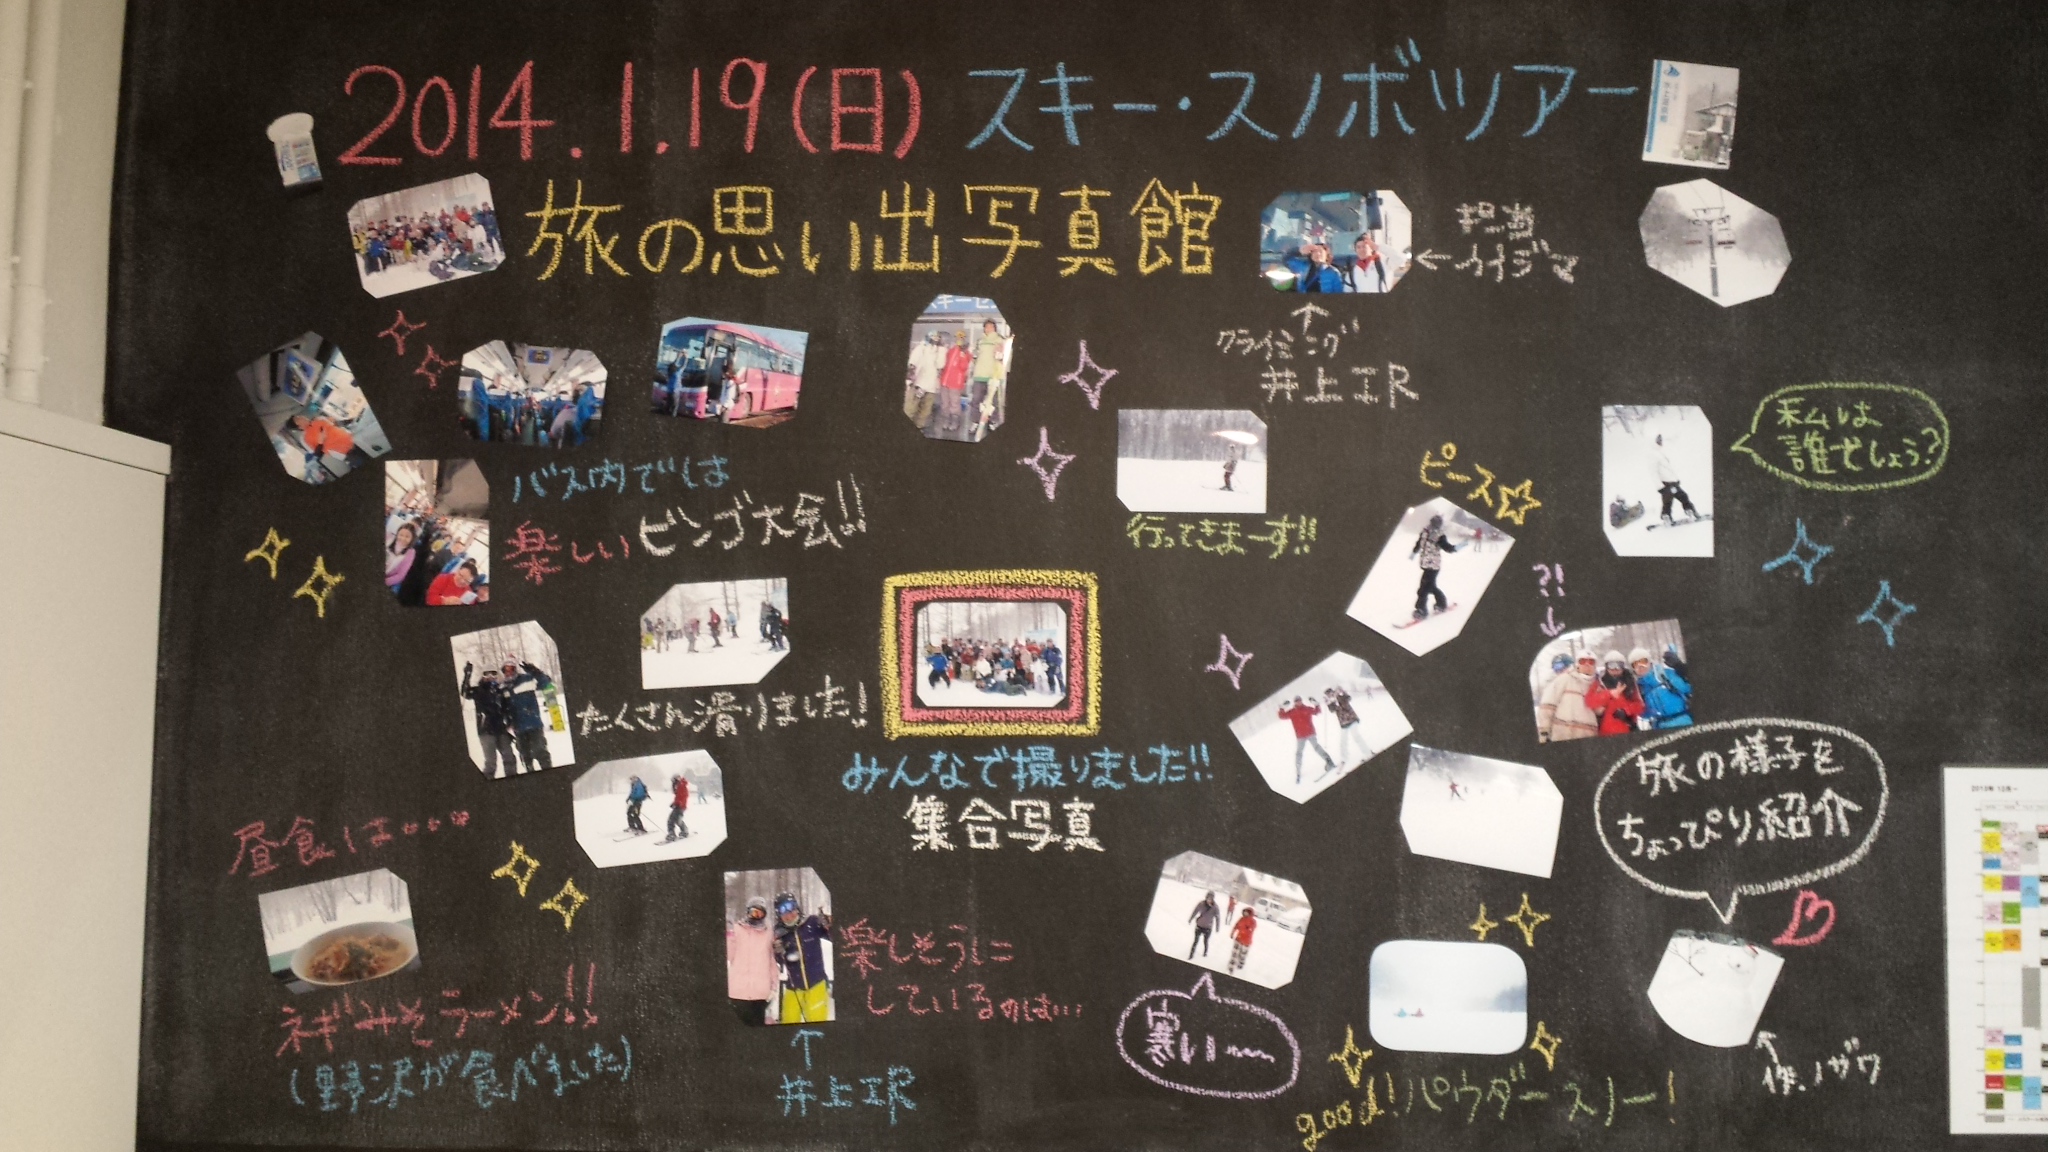 2014.1.19(日) スキー・スノボツアー
旅の思い出写真館
担当
←イイジマ
↑
クライミング
井上正尺
私は
誰でしょう?
ピース☆
バス内では
楽しいビンゴ大会!!
行ってきまーす!!
?!
↓
たくさん滑りました!
みんなで撮りました!!
集合写真
旅の様子を
ちょっぴり紹介
昼食は・・・
ネギみそラーメン!!
(野沢が食べました)
楽しそうに
しているのは…
↑
井上
寒い〜
good!パウダースノー!
作.ノザワ
2013年 12月~